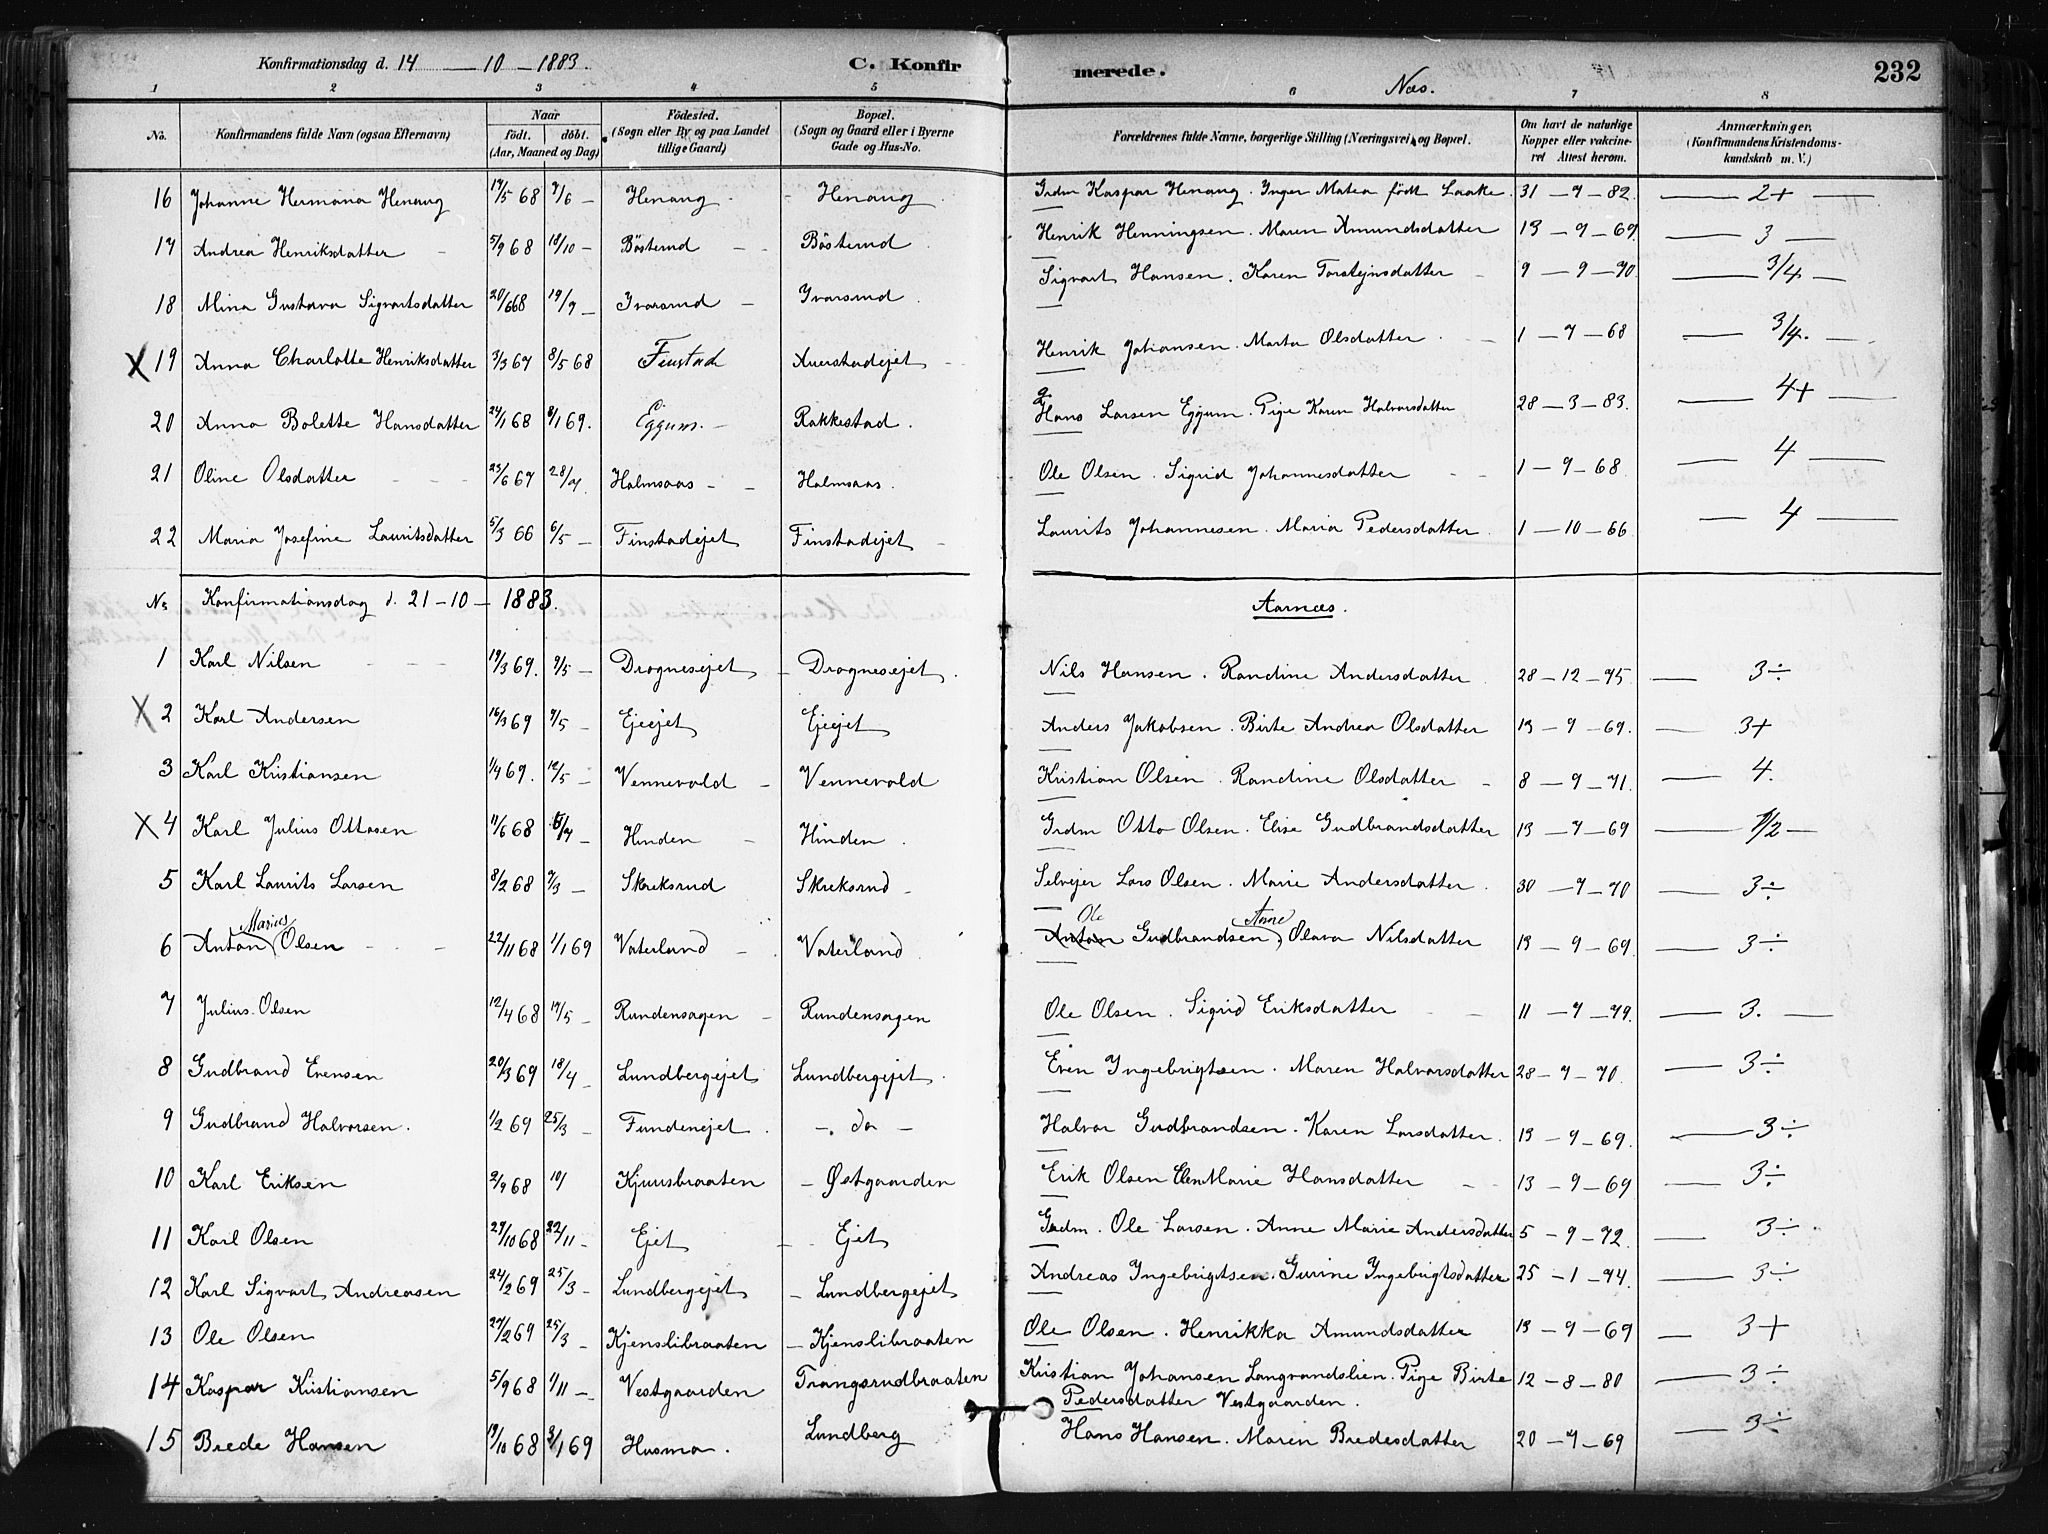 Konfirmationsdag d. 14 — 10 — 1883. C. Konfirmerede. Næs. 232
1 2 3 4 5 6 7 8
No. Konfirmandens fulde Navn (ogsaa Efternavn) Naar födt. döbt. (Aar, Maaned og Dag) Födested. (Sogn eller By og paa Landet tillige Gaard) Bopæl. (Sogn og Gaard eller i Byerne Gade og Hus-No. Forældrenes fulde Navne, borgerlige Stilling (Næringsvei) og Bopæl. Om havt de naturlige Kopper eller vakcineret Attest herom. Anmærkninger, (Konfirmandens Kristendomskundskab m. V.)
16 Johanne Hermana Henaug 17/5 68 7/6 — Henaug — Henaug Grdm Kaspar Henaug. Inger Matea födt Laake. 31 — 7 — 82. — 2+ —
17 Andrea Henriksdatter 5/9 68 18/10 — Bösterud — Bösterud Henrik Henningsen. Maren Amundsdatter 13 — 9 — 69. — 3 —
18 Mina Gustava Sigvartsdatter 20/6 68 19/7 — Ivarsrud — Ivarsrud. Sigvart Hansen. Karen Torstejnsdatter — 9 — 9 — 70 — 3/4 —
X 19 Anna Charlotte Henriksdatter 3/3 67 8/5 68 Finstad Auerstadejet Henrik Johansen. Marta Olsdatter. — 1 — 7 — 68 — 3/4. —
20 Anna Bolette Hansdatter 24/1 68 8/1 69. Eggum. — Rakkestad. Hans Larsen Eggum. Pige Karen Halvorsdatter 28 — 3 — 83. — 4+ —
21 Oline Olsdatter 23/6 67 28/7. Halmsaas — Halmsaas. Ole Olsen. Sigrid Johannesdatter 1 — 9 — 68 — 4 —
22 Maria Josefine Lauritsdatter 5/3 66 6/5 — Finstadejet Finstadejet — Laurits Johannesen. Maria Pedersdatter. 1 — 10 — 66 — 4 —
No Konfirmationsdag d. 21 — 10 — 1883. Aarnæs.
1 Karl Nilsen 19/3 69. 7/5 — Dragnesejet — Dragnesejet. Nils Hansen. Randine Andersdatter 28 — 12 — 75 — 3÷
X 2 Karl Andersen 16/3 69 7/5 — Ejeejet Ejeejet Anders Jakobsen. Birte Andrea Olsdatter 13 — 9 — 69. — 3+
3 Karl Kristiansen 1/4 69. 12/5 — Vennevald — Vennevald Kristian Olsen. Randine Olsdatter — 8 — 9 — 71. — 4.
X 4 Karl Julius Ottosen 11/6 68 5/7 — Hinden — Hinden. Grdm Otto Olsen. Elise Gudbrandsdatter 13 — 7 — 69 — 1/2 —
5 Karl Laurits Larsen 8/2 68 7/3 — Skreksrud Skreksrud — Selvejer Lars Olsen. Marie Andersdatter. 30 — 7 — 70 — 3÷
6 Anton Marius Olsen 22/11 68 1/1 69 Vaterland — Vaterland Ole Gudbrandsen, Anne Olava Nilsdatter 13 — 9 — 69 — 3÷
7 Julius Olsen 12/4 68 17/5 — Rundensagen — Rundensagen Ole Olsen. Sigrid Eriksdatter 11 — 7 — 79. — 3. —
8 Gudbrand Evensen 20/3 69 18/4 — Lundbergejet Lundbergejet. Even Ingebrigtsen. Maren Halvorsdatter 28 — 7 — 70. — 3÷
9 Gudbrand Halvorsen. 1/2 69 25/3 — Fundenejet. — do — Halvor Gudbrandsen. Karen Larsdatter. 13 — 9 — 69. — 3÷
10 Karl Eriksen 2/9 68 10/ Kjuusbraaten — Østgaarden Erik Olsen Elen Marie Hansdatter 13 — 9 — 69 — 3÷
11 Karl Olsen 27/10 68 22/11 — Ejet — Ejet Grdm. Ole Larsen. Anne Marie Andersdatter 5 — 9 — 72. — 3÷
12 Karl Sigvart Andreasen 24/2 69 25/3 — Lundbergejet — Lundbergejet Andreas Ingebrigtsen. Gurine Ingebrigtsdatter 25 — 1 — 74. — 3÷
13 Ole Olsen 27/2 69 25/3 — Kjenslibraaten — Kjenslibraaten Ole Olsen. Henrikka Amundsdatter 13 — 9 — 69 — 3+
14 Kaspar Kristiansen 5/9 68 1/11 — Vestgaarden Trangsrudbraaten Kristian Johansen Langrandslien. Pige Birte 12 — 8 — 80 — 3÷
Pedersdatter Vestgaarden.
15 Brede Hansen 19/11 68 3/1 69 Husmo. Lundberg Hans Hansen. Maren Bredesdatter 20 — 7 — 69 — 3÷